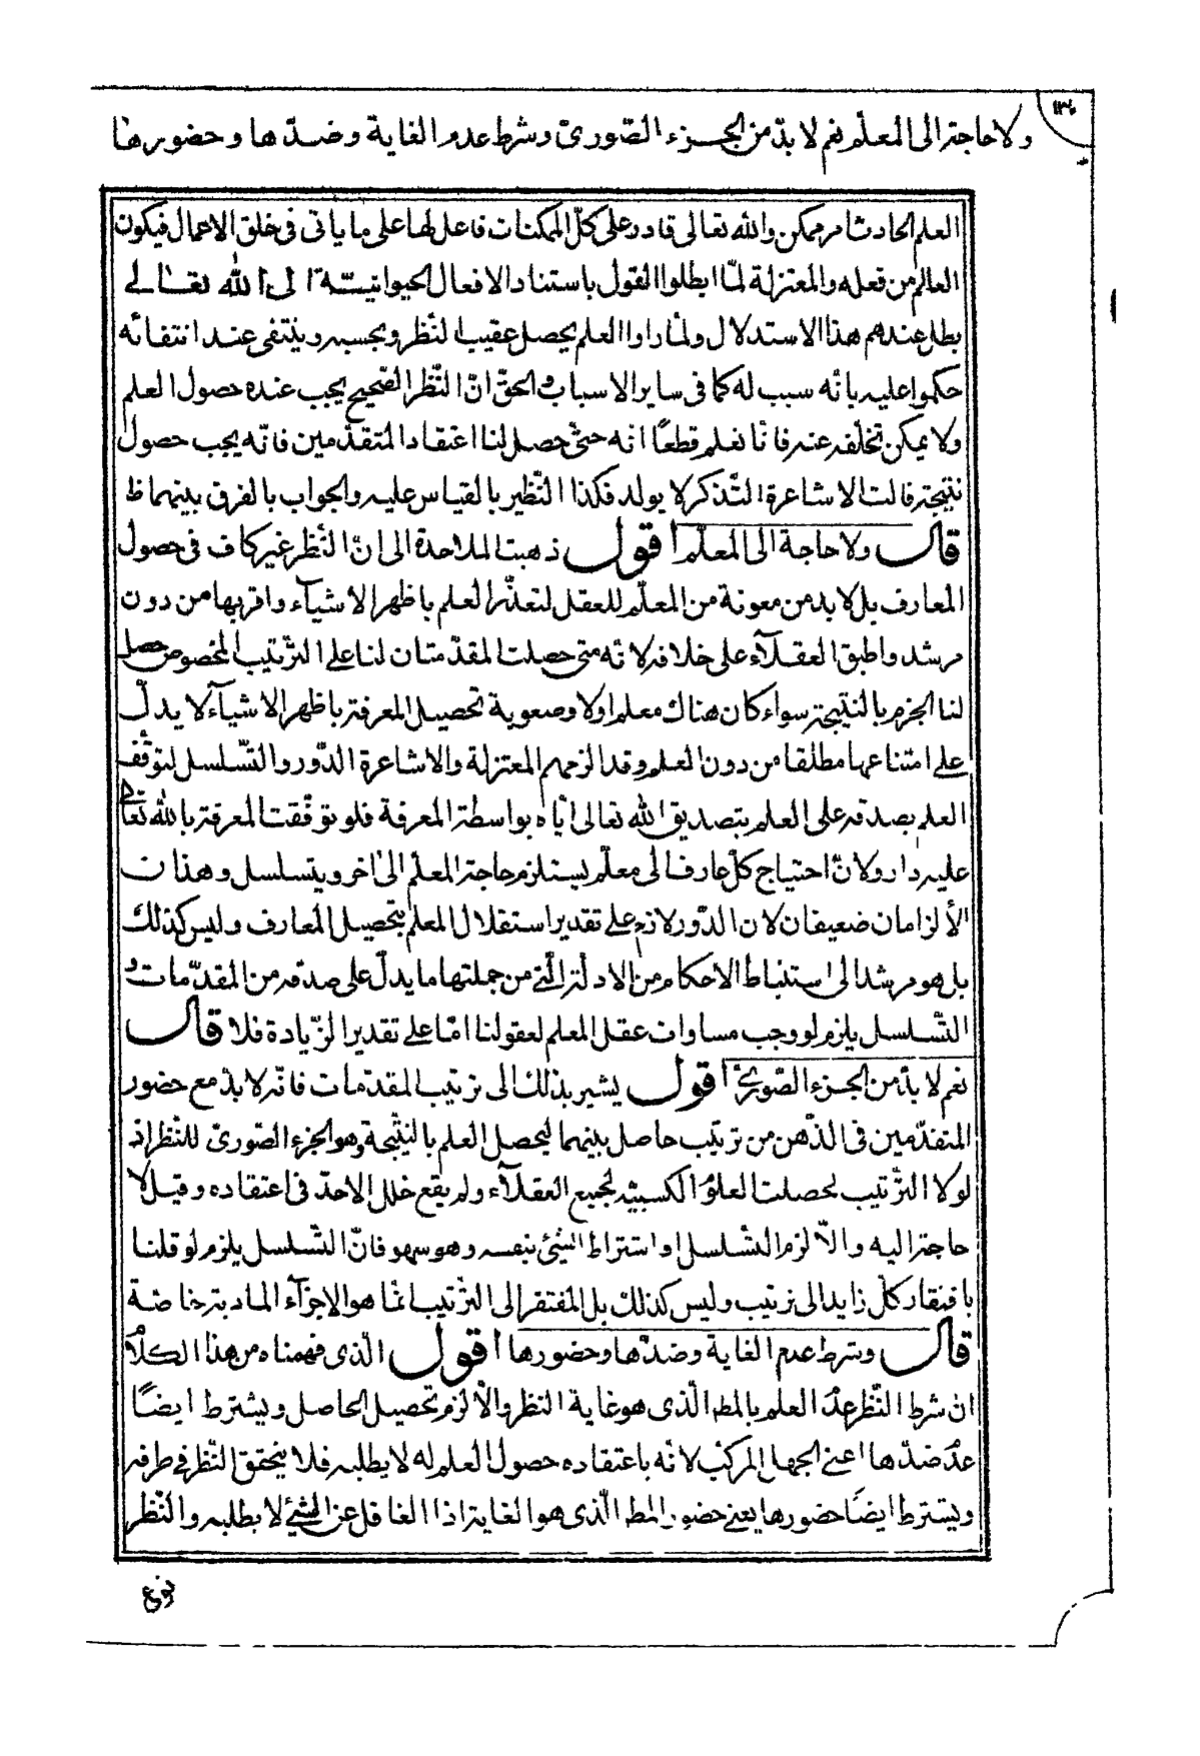 ١٣٠
ولا حاجة الى المعلّم نعم لا بدّ من الجزء الصّورىّ وشرط عدم الغاية وضدّها وحضورها
العلم الحادث امر ممكن والله تعالى قادر على كلّ الممكنات فاعل لها على ما ياتى فى خلق الاعمال فيكون
العالم من فعله والمعتزلة لمّا ابطلوا القول باستناد الافعال الحيوانيّة الى الله تعالى
بطل عندهم هذا الاستدلال ولمّا راوا العلم يحصل عقيب النّظر وبحسبه وينتفى عند انتفائه
حكموا عليه بانّه سبب له كما فى ساير الاسباب والحقّ انّ النّظر الصّحيح يجب عنده حصول العلم
ولا يمكن تخلّفه عنه فانّا نعلم قطعًا انّه متى حصل لنا اعتقاد المتقدّمين فانّه يجب حصول
نتيجة قالت الاشاعرة التّذكر لا يولد فكذا النّظير بالقياس عليه والجواب بالفرق بينهما ظ
قال ولا حاجة الى المعلّم اقول ذهبت الملاحدة الى انّ النّظر غير كاف فى حصول
المعارف بل لا بد من معونة من المعلّم للعقل لتعذّر العلم باظهر الاشياء واقربها من دون
مرشد واطبق العقلاء على خلافه لانّه متى حصلت المقدّمتان لنا على التّرتيب المخصوص حصل
لنا الجزم بالنتيجة سواء كان هناك معلم اولا وصعوبة تحصيل المعرفة باظهر الاشياء لا يدلّ
على امتناعها مطلقا من دون المعلم وقد الزمهم المعتزلة والاشاعرة الدّور والتّسلسل لتوقّف
العلم بصدقه على العلم بتصديق الله تعالى ايّاه بواسطة المعرفة فلو توقّفت المعرفة بالله تعالى
عليه دار ولانّ احتياج كلّ عارف الى معلّم يستلزم حاجة المعلّم الى اخر ويتسلسل وهذان
الالزامان ضعيفان لان الدّور لازم على تقدير استقلال المعلّم بتحصيل المعارف وليس كذلك
بل هو مرشد الى استنباط الاحكام من الادلة الّتى من جملتها ما يدلّ على صدقه من المقدّمات و
التّسلسل يلزم لو وجب مساوات عقل المعلم لعقولنا امّا على تقدير الزّيادة فلا قال
نعم لا بدّ من الجزء الصّورىّ اقول يشير بذلك الى ترتيب المقدّمات فانّه لا بدّ مع حضور
المتقدّمين فى الذّهن من ترتيب حاصل بينهما ليحصل العلم بالنتيجة وهو الجزء الصّورىّ للنّظر اذ
لولا التّرتيب لحصلت العلوم الكسبيّة لجميع العقلاء ولم يقع خلل لاحد فى اعتقاده وقيل لا
حاجة اليه والّا لزم التّسلسل او اشتراط الشئ بنفسه وهو سهو فانّ التّسلسل يلزم لو قلنا
بافتقار كلّ زايد الى ترتيب وليس كذلك بل المفتقر الى التّرتيب انّما هو الاجزاء المادية خاصّة
قال وشرط عدم الغاية وضدّها وحضورها اقول الّذى فهمناه من هذا الكلام
ان شرط النّظر عدم العلم بالمط الّذى هو غاية النظر والّا لزم تحصيل الحاصل ويشترط ايضًا
عدم ضدّها اعنى الجهل المركّب لانّه باعتقاده حصول العلم له لا يطلبه فلا يتحقق النّظر فى طرفه
ويشترط ايضًا حضورها يعنى حضور المط الّذى هو الغاية اذ الغافل عن الشئ لا يطلبه والنّظر
نوع